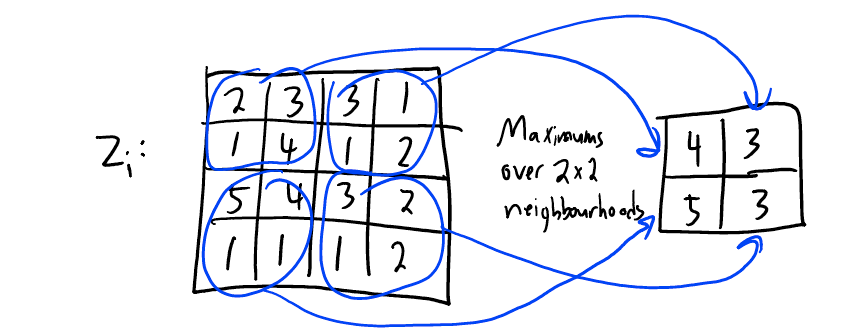 Zi:
2 3 3 1
1 4 1 2
5 4 3 2
1 1 1 2
Maximums
over 2x2
neighbourhoods
4 3
5 3